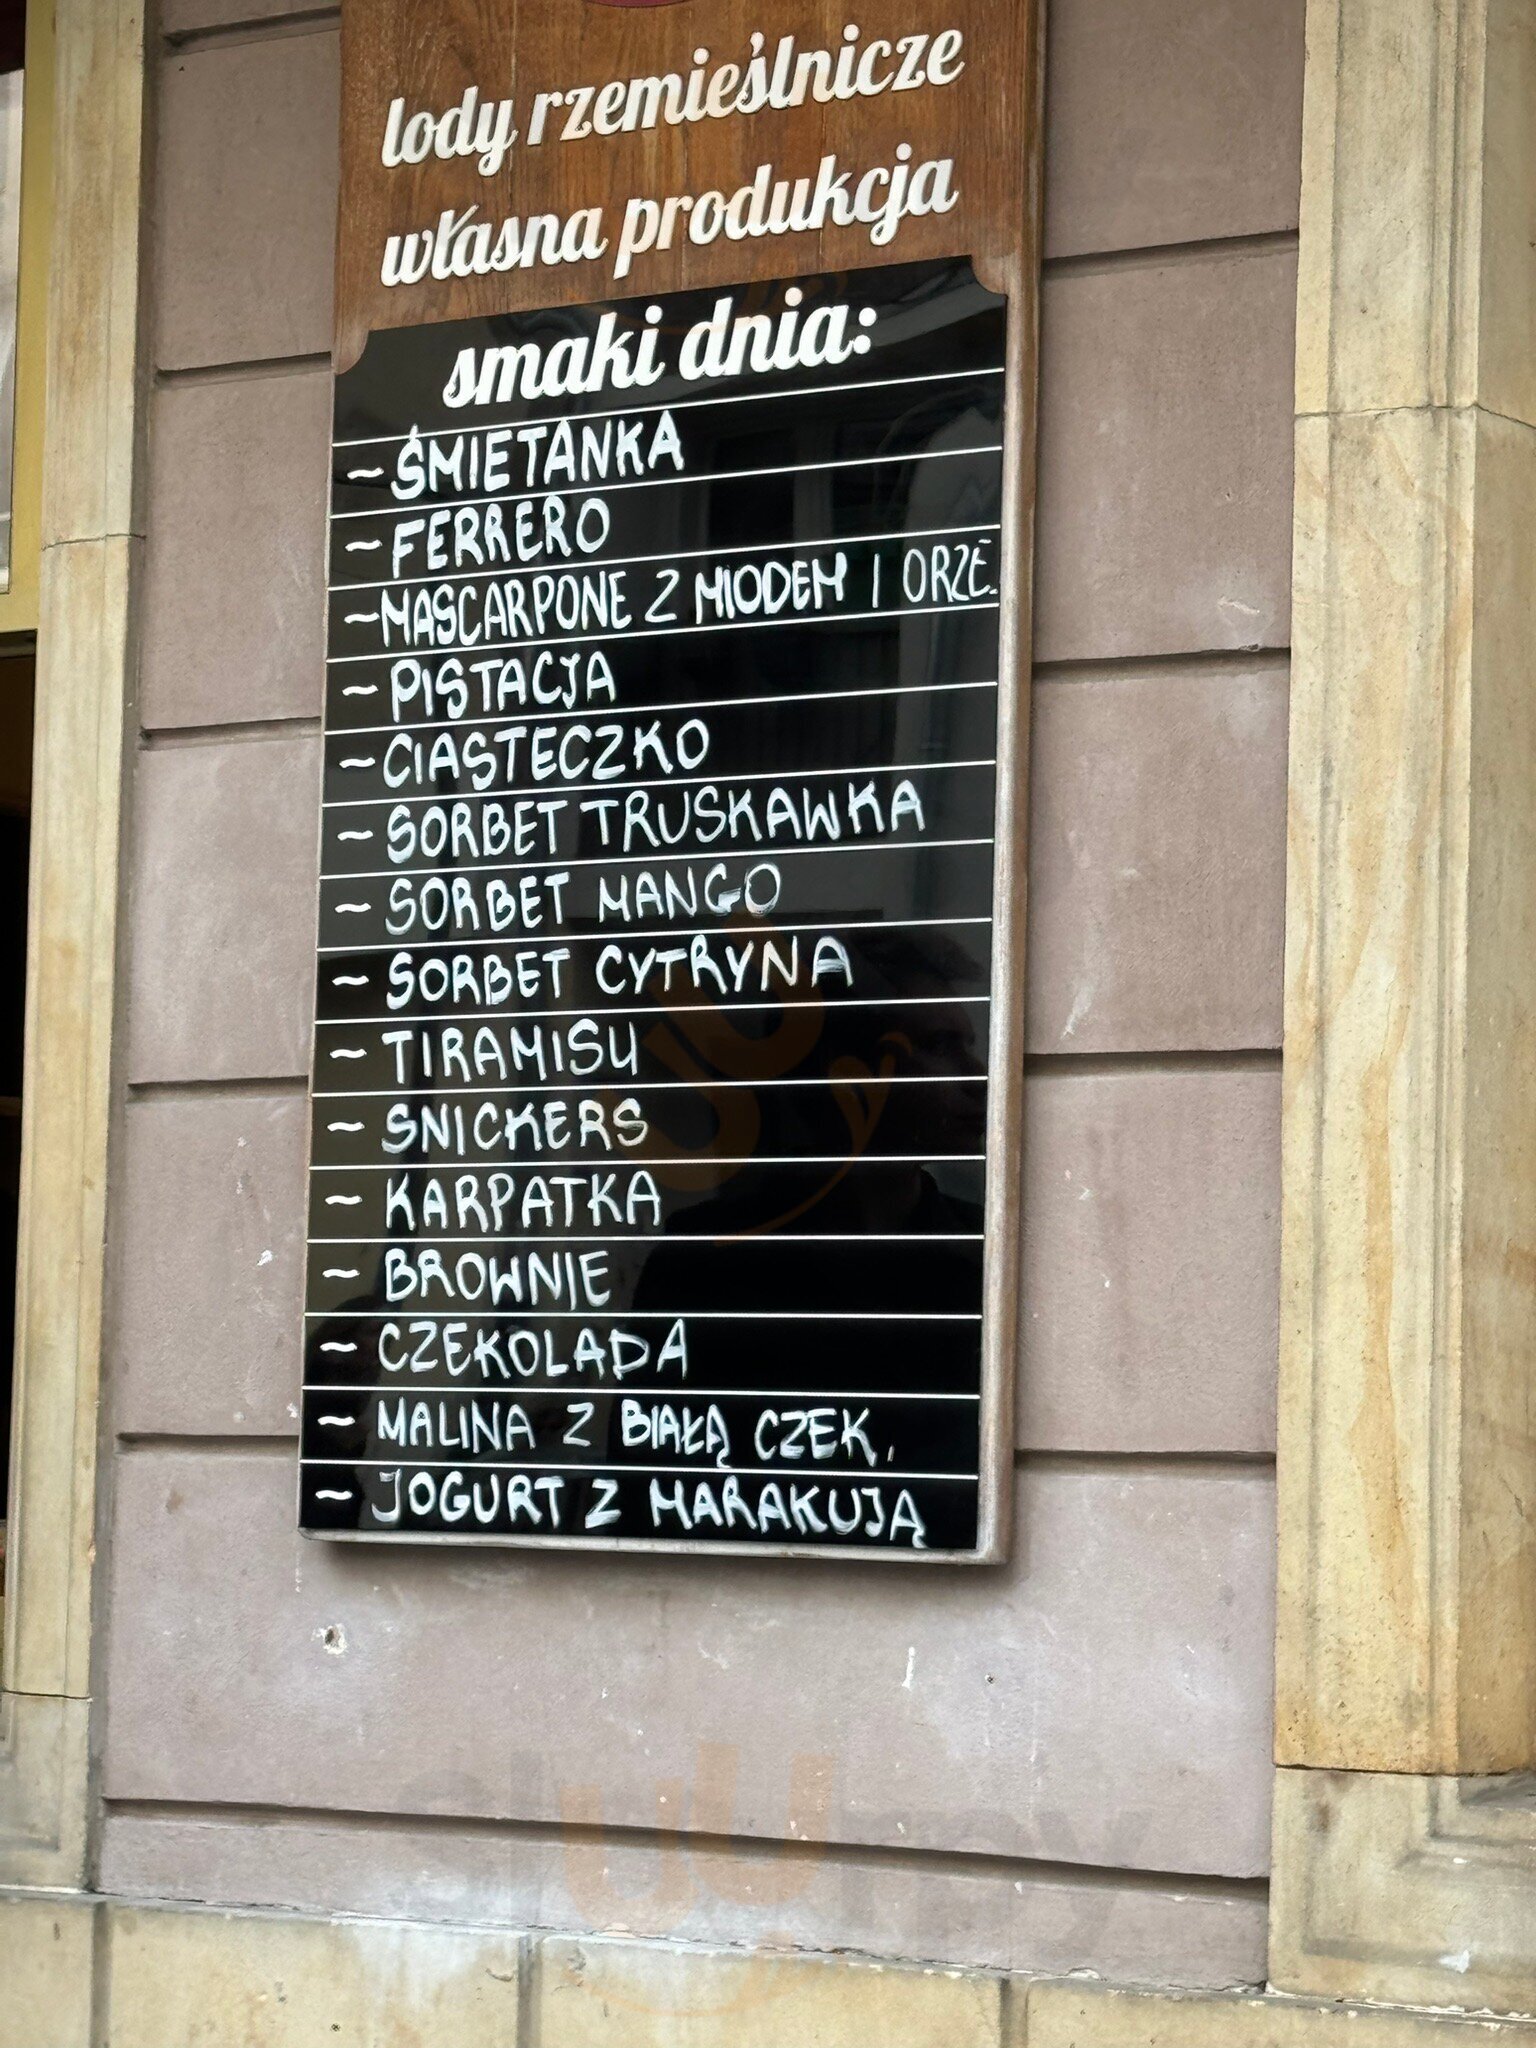 lody rzemieślnicze
własna produkcja
smaki dnia:
~ ŚMIETANKA
~ FERRERO
~ MASCARPONE Z MIODEM I ORZE.
~ PISTACJA
~ CIASTECZKO
~ SORBET TRUSKAWKA
~ SORBET MANGO
~ SORBET CYTRYNA
~ TIRAMISU
~ SNICKERS
~ KARPATKA
~ BROWNIE
~ CZEKOLADA
~ MALINA Z BIAŁĄ CZEK.
~ JOGURT Z MARAKUJĄ